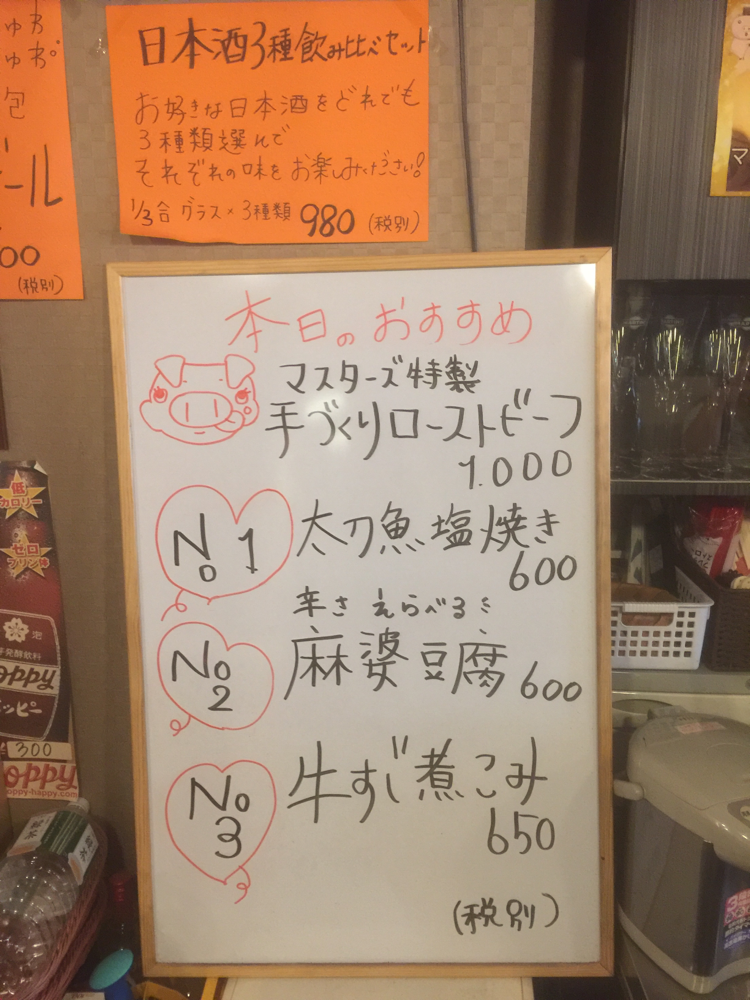 日本酒3種飲み比べセット
お好きな日本酒をどれでも
3種類選んで
それぞれの味をお楽しみください!
1/3合 グラス×3種類 980 (税別)
ゅわ
ゅわ。
包
ール
00
(税別)
マ
本日のおすすめ
マスターズ特製
手づくりローストビーフ
1.000
No 1
太刀魚塩焼き
600
辛さ えらべる
No 2
麻婆豆腐 600
No 3
牛すじ煮こみ
650
(税別)
低
カロリー
ゼロ
プリン体
発酵飲料
oppy
ッピー
300
oppy
oppy-happy.com